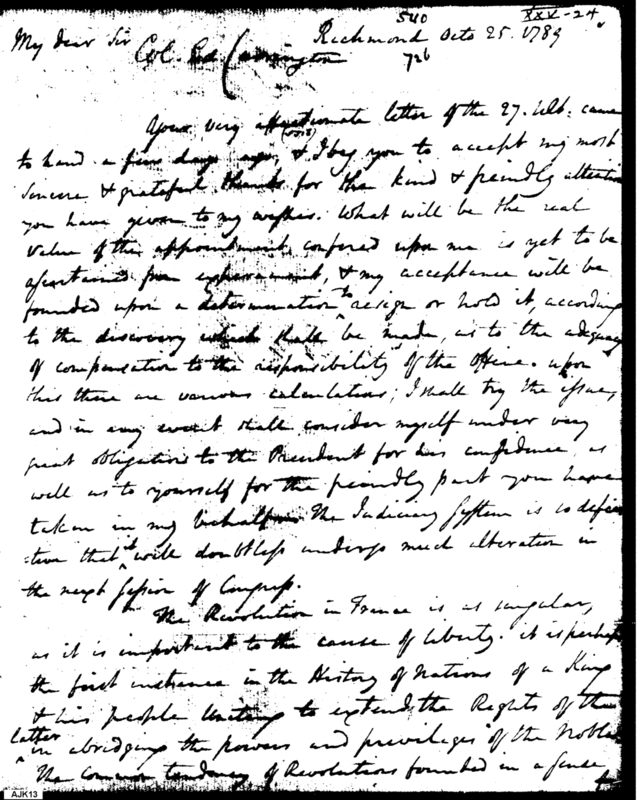 540 XXV-24
My dear Sir Richmond Octo 25. 1789
Col. Ed Carrington 726
Your very affectionate letter of the 27. Ult. came
to hand a few days ago, & I beg you to accept my most
sincere & grateful thanks for the kind & friendly attention
you have given to my wishes. What will be the real
value of the appointment confered upon me is yet to be
ascertained from experiment, & my acceptance will be
founded upon a determination to resign or hold it, according
to the discovery which shall be made, as to the adequacy
of compensation to the responsibility of the Office. upon
this there are various calculations; I shall try the issue,
and in any event shall consider myself under very
great obligations to the President for his confidence, as
well as to yourself for the friendly part you have
taken in my behalf. The Judiciary System is so defec
tive that it will doubtless undergo much alteration in
the next Session of Congress.
The Revolution in France is as singular,
as it is important to the cause of liberty. it is perhaps
the first instance in the History of Nations of a King
& his people Uniting to extend the Rights of the
latter in abridging the powers and priviledges of the Nobles
The Common tendency of Revolutions founded in a sense
AJK13